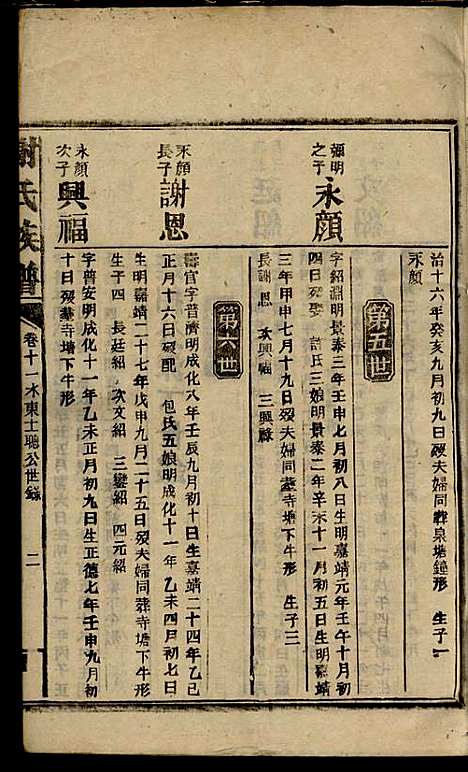 治十六年癸亥九月初九日歿夫婦同葬泉塘鐘形　生子一
永顔
第五世
彊明之子　永顔
字紹淵明景泰三年壬申七月初八日生明嘉靖元年壬午十月初
四日歿娶　許氏三娘明景泰二年辛未十一月初五日生明嘉靖
三年甲申七月十九日歿夫婦同葬寺塘下牛形　生子三
長謝恩　次興福　三興祿
第六世
永顔長子　謝恩
壽官字普濟明成化八年壬辰九月初十日生嘉靖二十四年乙巳
正月十六日歿配　包氏五娘明成化十一年乙未四月初七日
生明嘉靖二十七年戊申九月二十五日歿夫婦同葬寺塘下牛形
生子四　長廷紹　次文紹　三鑾紹　四元紹
永顔次子　興福
字普安明成化十一年乙未正月初九日生正德七年壬申九月初
十日歿葬寺塘下牛形
謝氏族譜　卷十一水東士聰公世錄　二